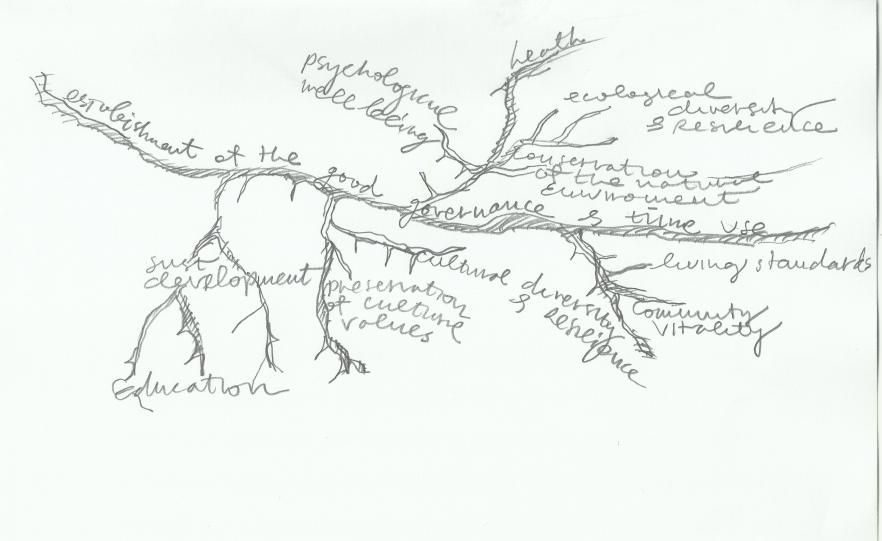 heath
psychological
well being
ecological
diversity
& resilience
establishment of the good governance & time use
conservation
of the natural
enviroment
sust
development
Education
preservation
of culture
values
culture diversity
& resilience
living standards
community
vitality